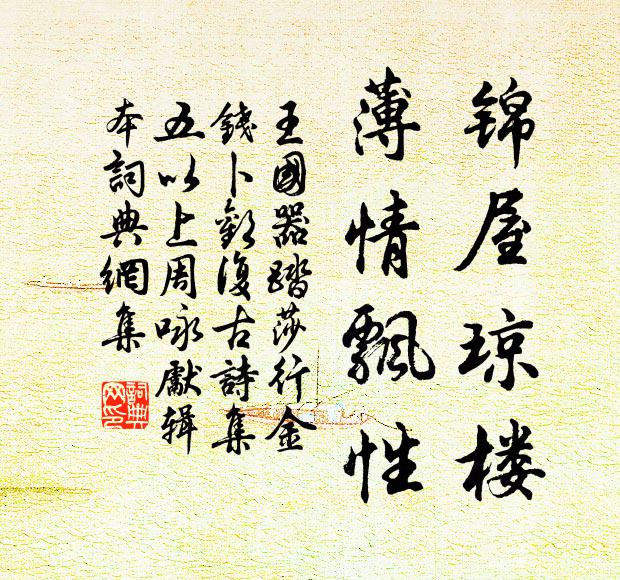 锦屋琼楼
薄情飘性
王國器踏莎行金
錢卜歡復古詩集
五以上周咏獻辑
本詞典網集
詞典